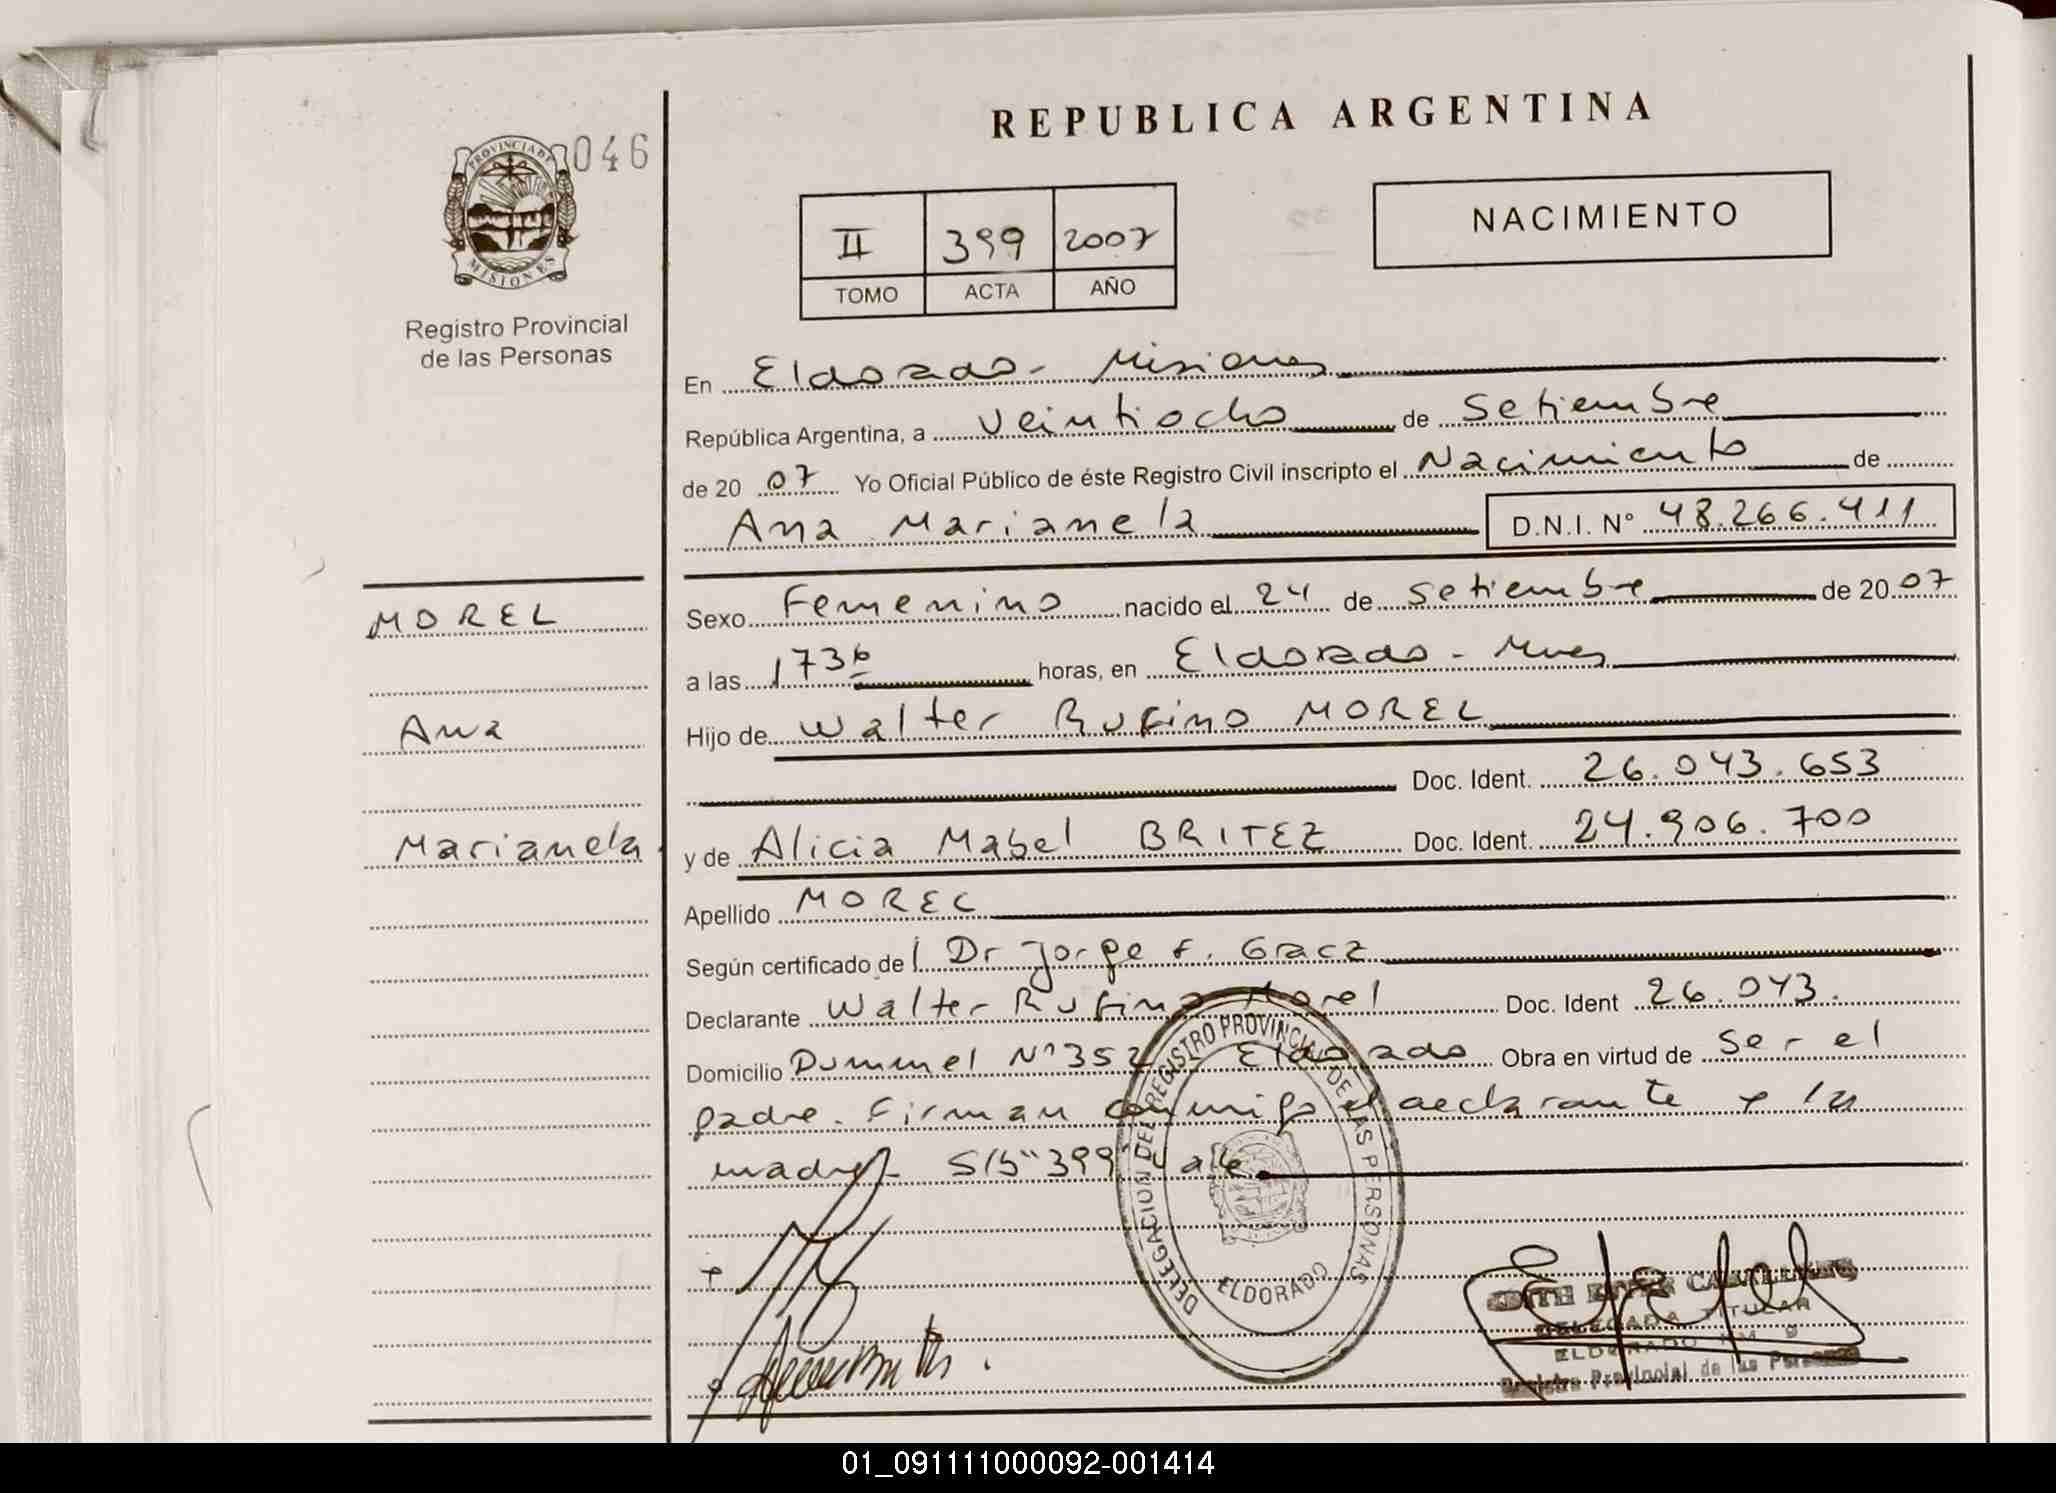 REPUBLICA ARGENTINA
PROVINCIA DE
MISIONES
046
Registro Provincial
de las Personas
II 399 2007
TOMO ACTA AÑO
NACIMIENTO
En Eldorado - Misiones
República Argentina, a veintiocho de Setiembre
de 20 07 Yo Oficial Público de éste Registro Civil inscripto el Nacimiento de
Ana Marianela D.N.I. N° 48.266.411
MOREL
Ana
Marianela
Sexo Femenino nacido el 24 de Setiembre de 20 07
a las horas, en Eldorado - Mnes
Hijo de Walter Rufino MOREL
Doc. Ident. 26.043.653
y de Alicia Mabel BRITEZ Doc. Ident. 24.906.700
Apellido MOREL
Según certificado del Dr Jorge F. Gracz
Declarante Walter Rufino Morel Doc. Ident 26.043.
Domicilio Dummel N° 352 Eldorado Obra en virtud de ser el
padre. Firman conmigo el declarante y la
madre 399 vale
DELEGACION DEL REGISTRO PROVINCIAL DE LAS PERSONAS
ELDORADO
DELEGADA TITULAR
ELDORADO KM 9
Registro Provincial de las Personas
01_091111000092-001414